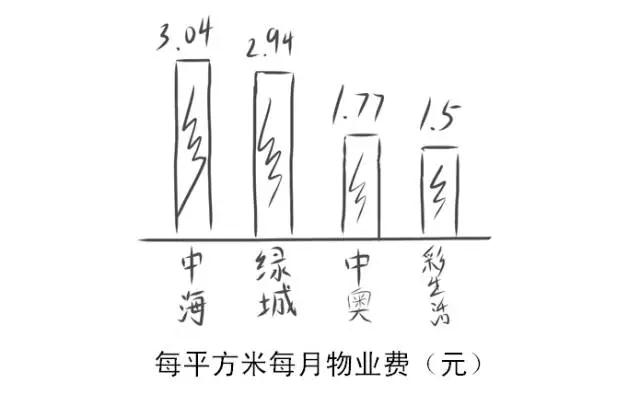 3.04
2.94
1.77
1.5
中海
绿城
中奥
彩生活
每平方米每月物业费（元）